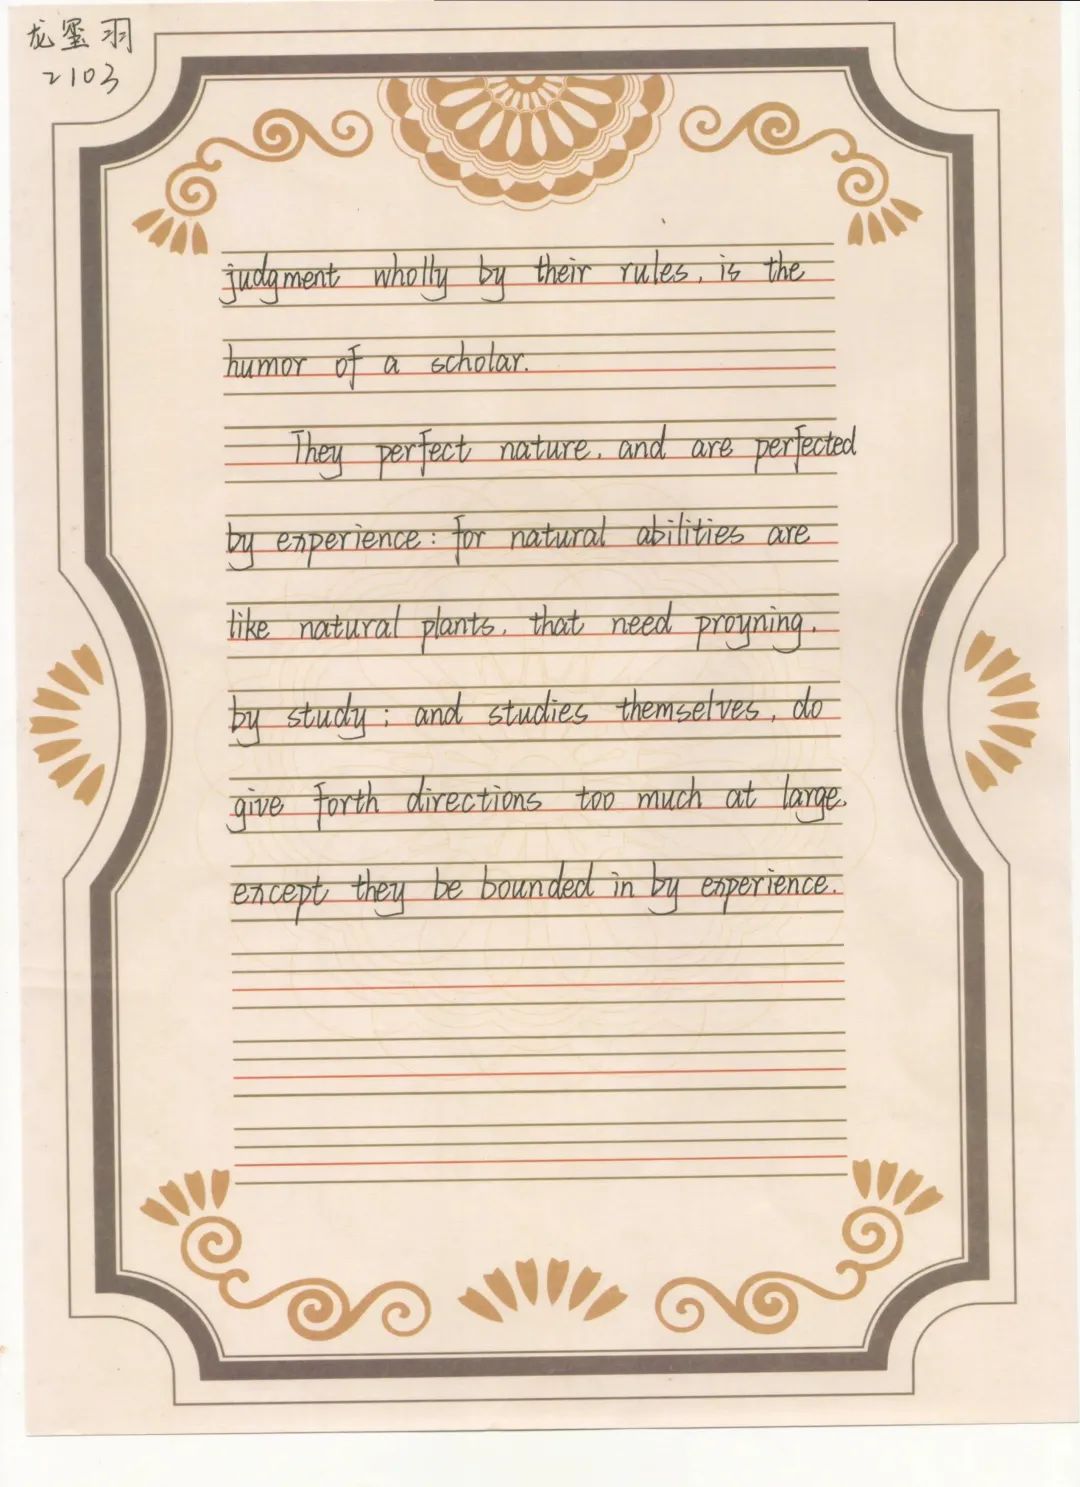 龙玺羽
2103
judgment wholly by their rules, is the
humor of a scholar.
They perfect nature, and are perfected
by experience: for natural abilities are
like natural plants, that need proyning,
by study; and studies themselves, do
give forth directions too much at large,
except they be bounded in by experience.